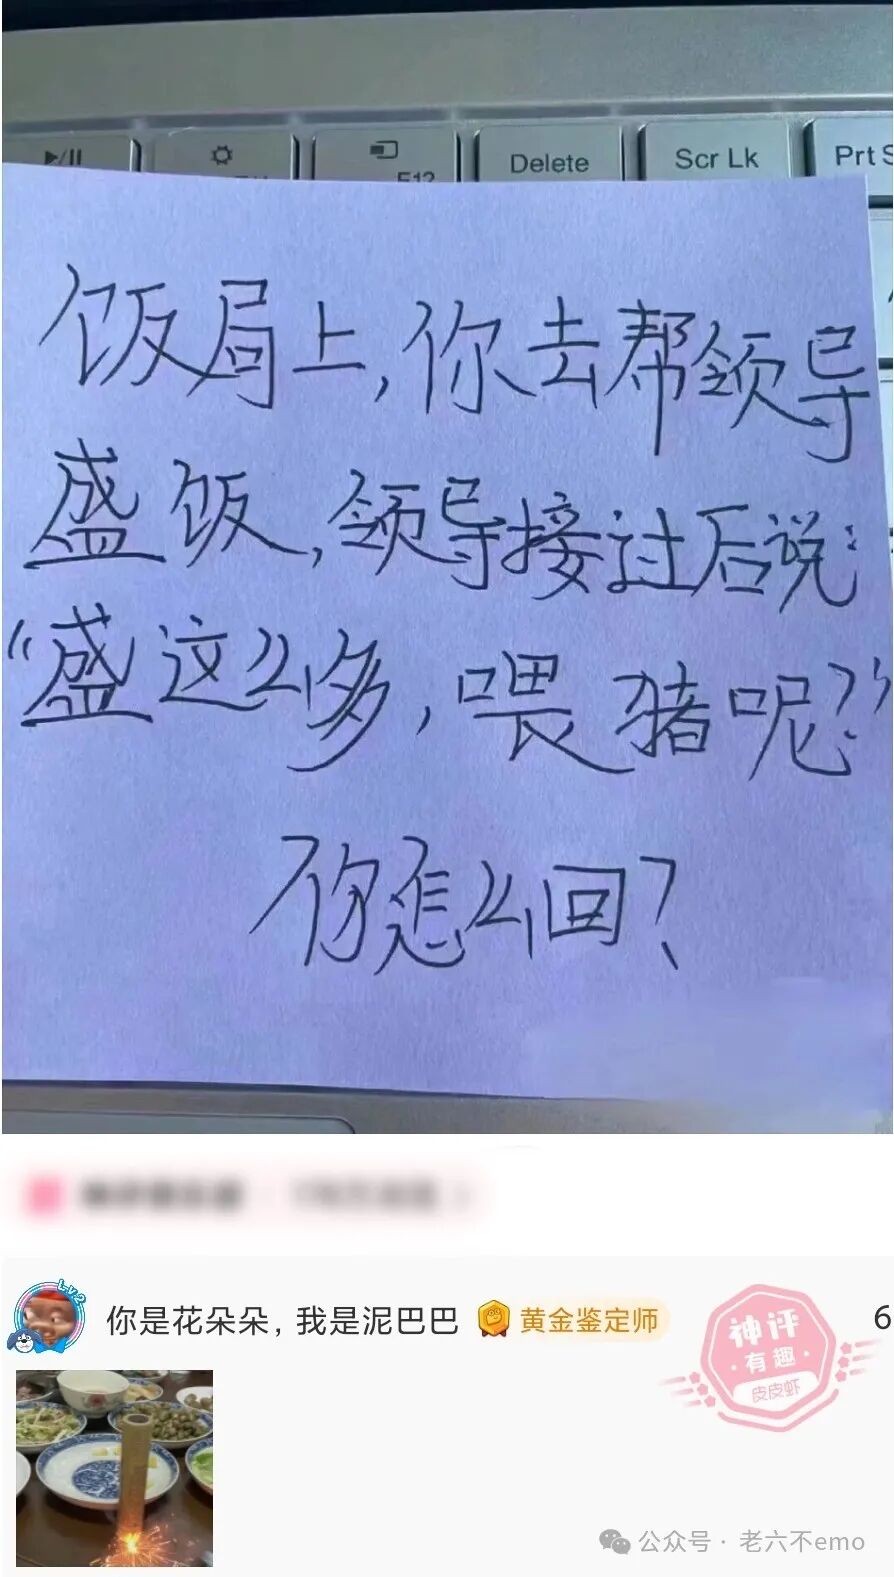 F12
Delete
Scr Lk
Prt S
饭局上，你去帮领导
盛饭，领导接过后说：
“盛这么多，喂猪呢？”
你怎么回？
Lv2
你是花朵朵，我是泥巴巴
黄金鉴定师
神评
·有趣·
皮皮虾
6
公众号·老六不emo